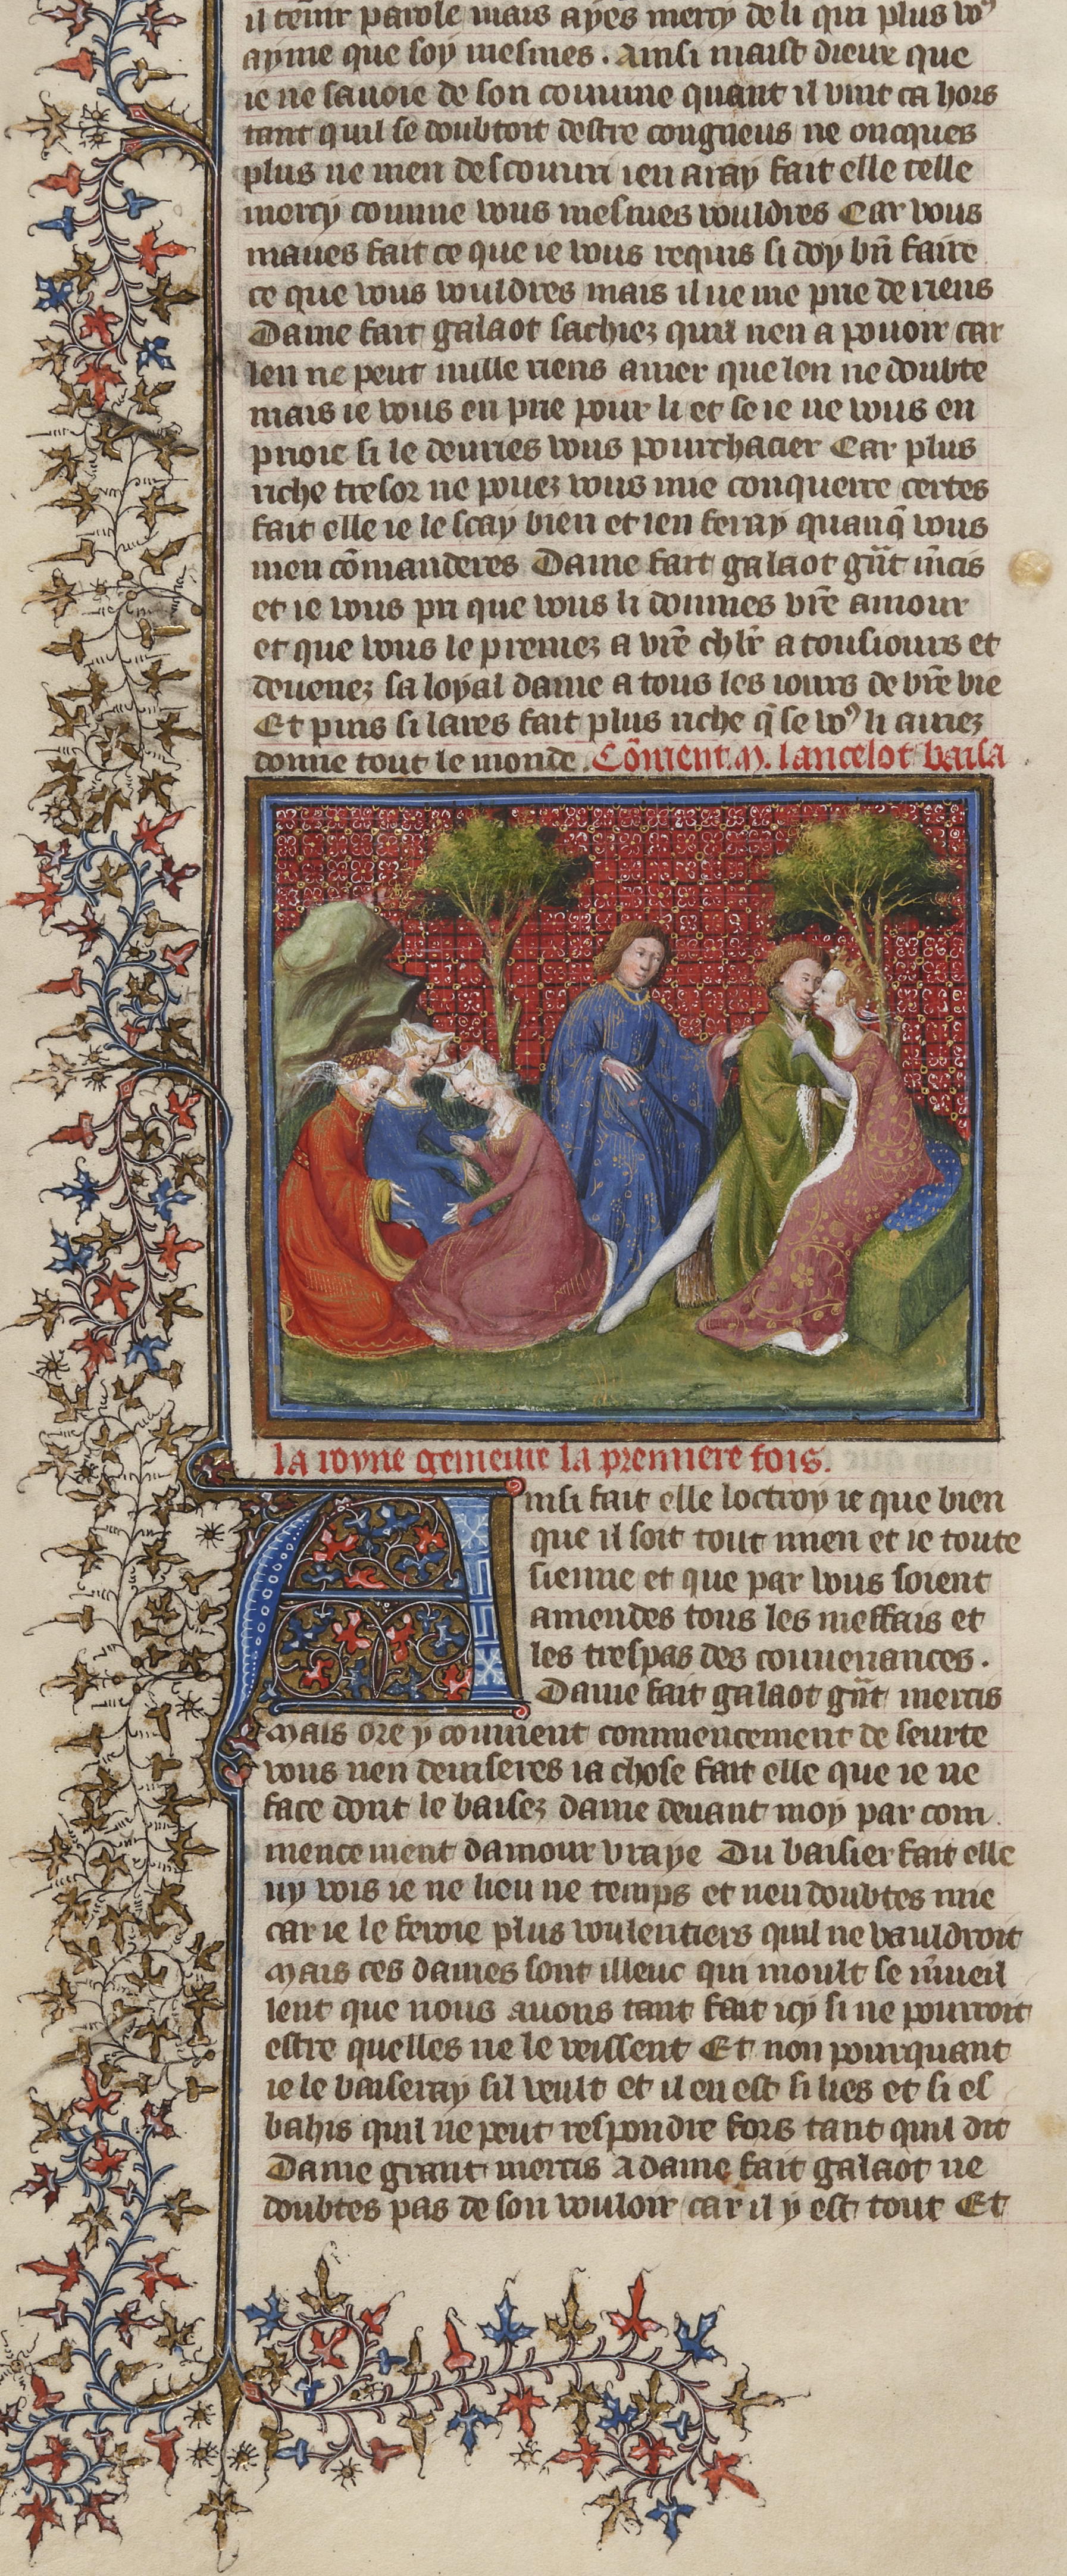 il tenir parole mais ayes mercy de li qui plus voꝰ
ayme que soy mesmes . Ainsi maist dieux que
ie ne sauoie de son couuine quant il vint ca hors
tant quil se doubtoit destre congneus ne oncques
plus ne men descouuri ien aray fait elle telle
mercy comme vous mesmes vouldres Car vous
maues fait ce que ie vous requis si doy bñ faire
ce que vous vouldres mais il ne me prie de riens
Dame fait galaot sachiez quil nen a pouoir car
len ne peut nulle riens amer que len ne doubte
mais ie vous en prie pour li et se ie ne vous en
prioie si le deuries vous pourchacier Car plus
riche tresor ne pouez vous mie conquerre certes
fait elle ie le scay bien et ien feray quanq̃ vous
men cõmanderes Dame fait galaot gñt m̃cis
et ie vous pri que vous li donnes vr̃e amour
et que vous le prenez a vr̃e chlr̃ a tousiours et
deuenez sa loyal dame a tous les iours de vr̃e vie
Et puis si lares fait plus riche q̃ se voꝰ li auiez
donne tout le monde . Cõment .m. lancelot baisa
la royne genieure la premiere fois .
Ainsi fait elle loctroy ie que bien
que il soit tout mien et ie toute
sienne et que par vous soient
amendes tous les meffais et
les trespas des conuenances .
Dame fait galaot gñt mercis
Mais ore y conuient commencement de seurte
vous nen deuiseres ia chose fait elle que ie ne
face dont le baisez dame deuant moy par com
mencement damour vraye Du baisier fait elle
ny vois ie ne lieu ne temps et nen doubtes mie
car ie le feroie plus voulentiers quil ne vauldroit
Mais ces dames sont illeuc qui moult se m̃ueil
lent que nous auons tant fait icy si ne pourroit
estre quelles ne le veissent Et non pourquant
ie le baiseray sil veult et il en est si lies et si es
bahis quil ne peut respondre fors tant quil dit
Dame grant mercis A dame fait galaot ne
doubtes pas de son vouloir car il y est tout Et